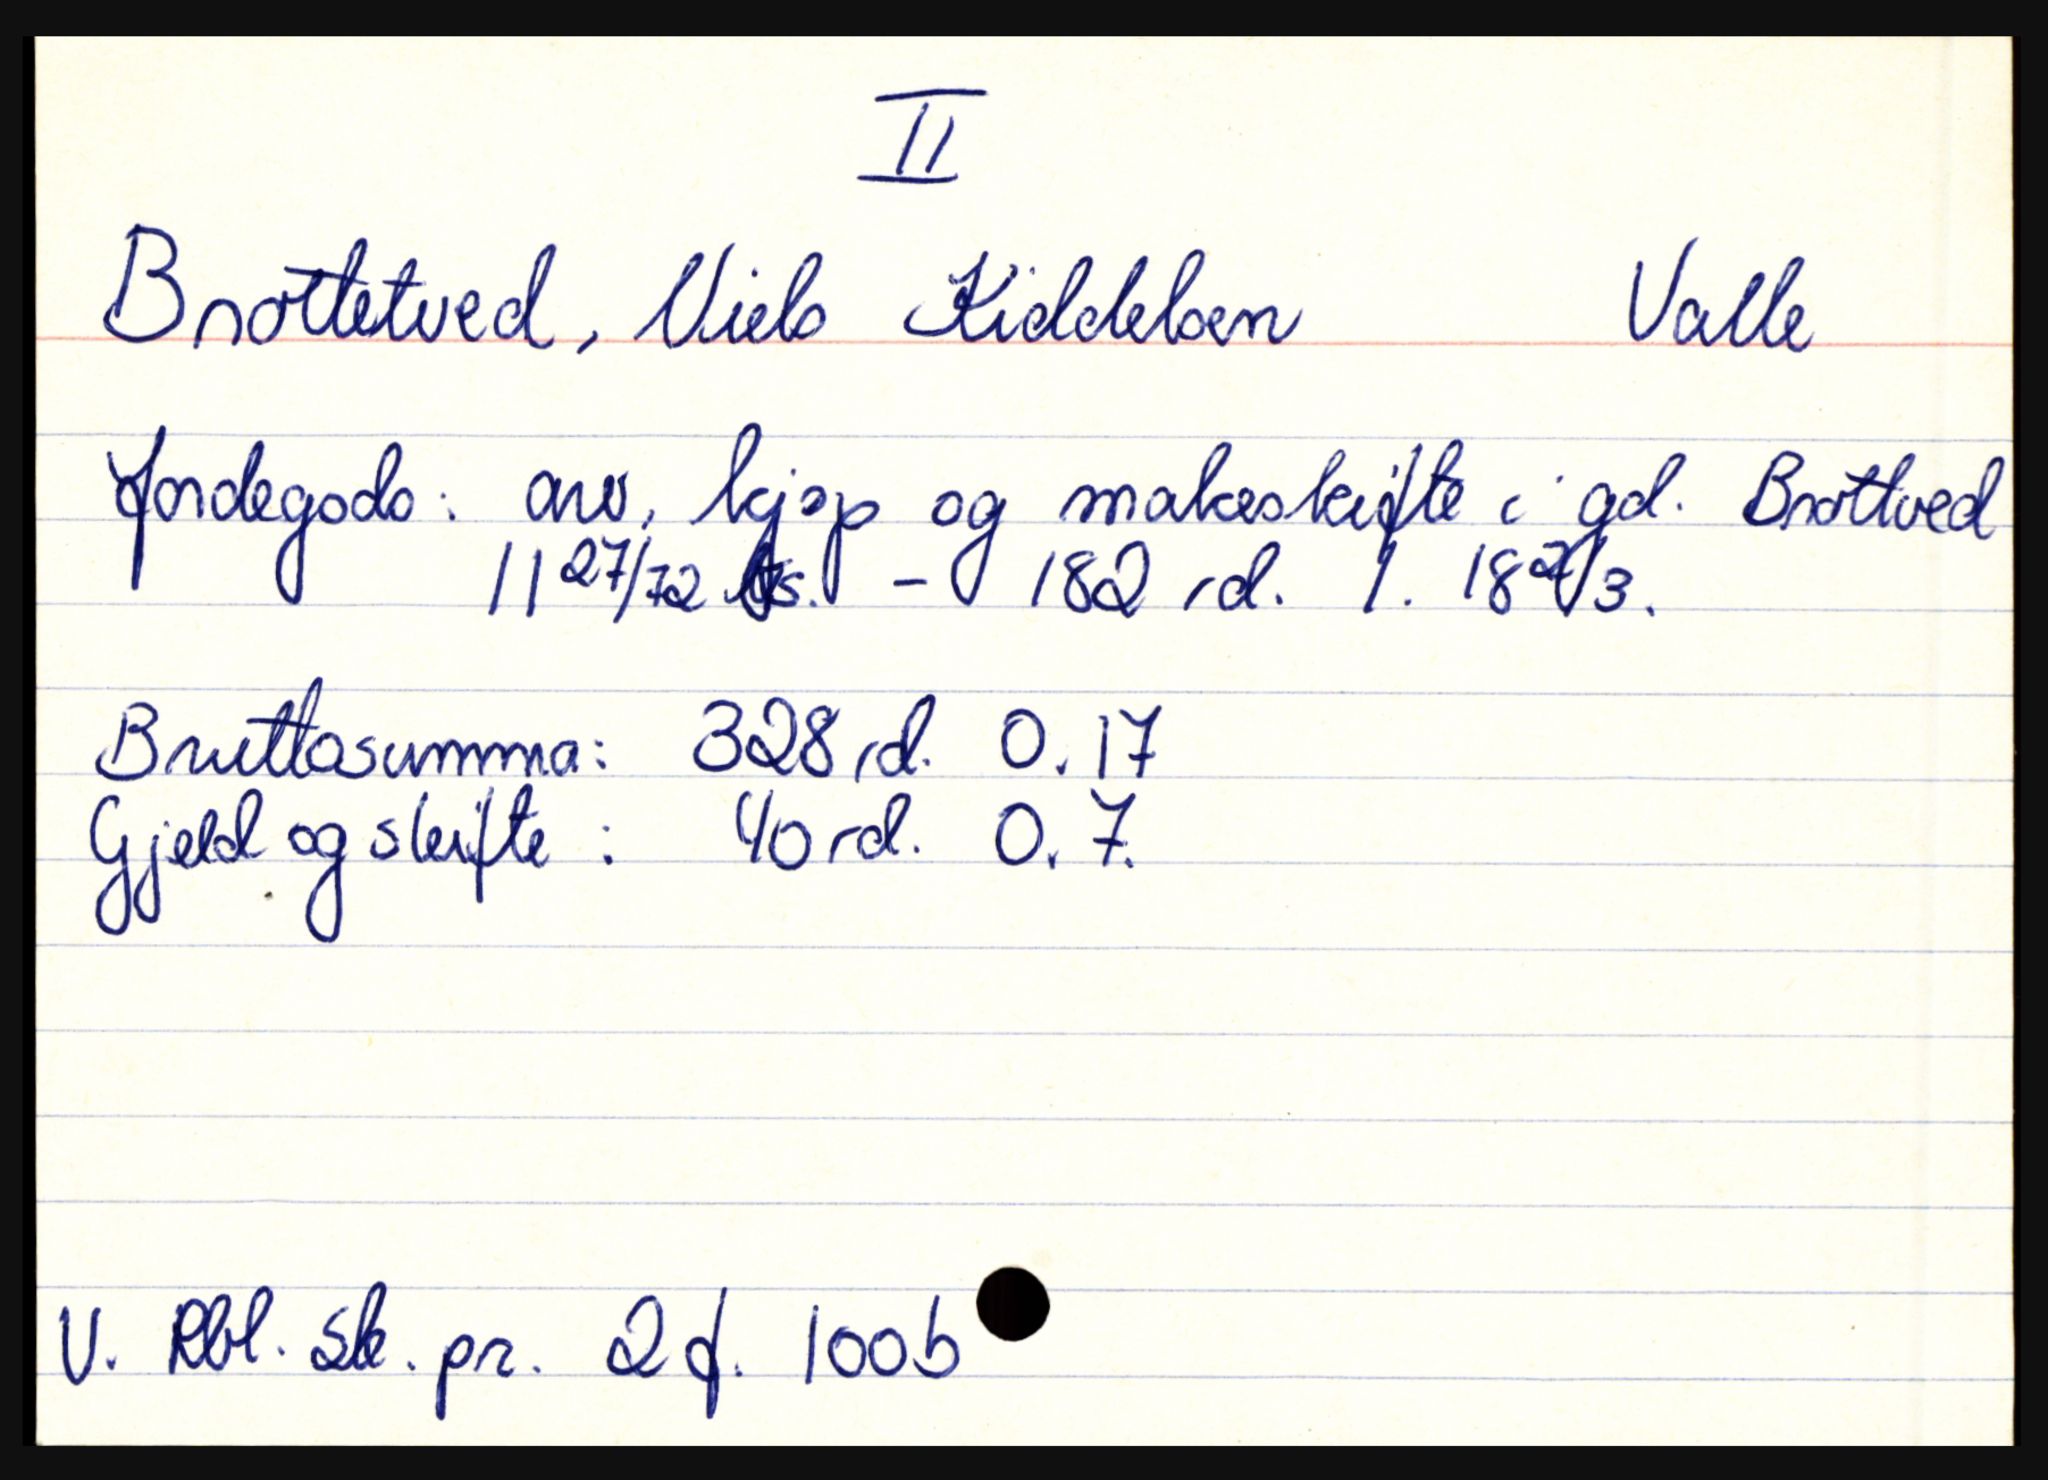 II
Brottetved, Niels Kiddelsen Valle
Jordegods: arv, kjøp og makeskifte i gd. Brottved
11 27/72 ks. - 182 rd. 1. 18 2/3.
Bruttosumma: 328 rd. 0. 17
Gjeld og skifte : 40 rd. 0. 7.
V. Rbl. sk. pr. 2 f. 100b